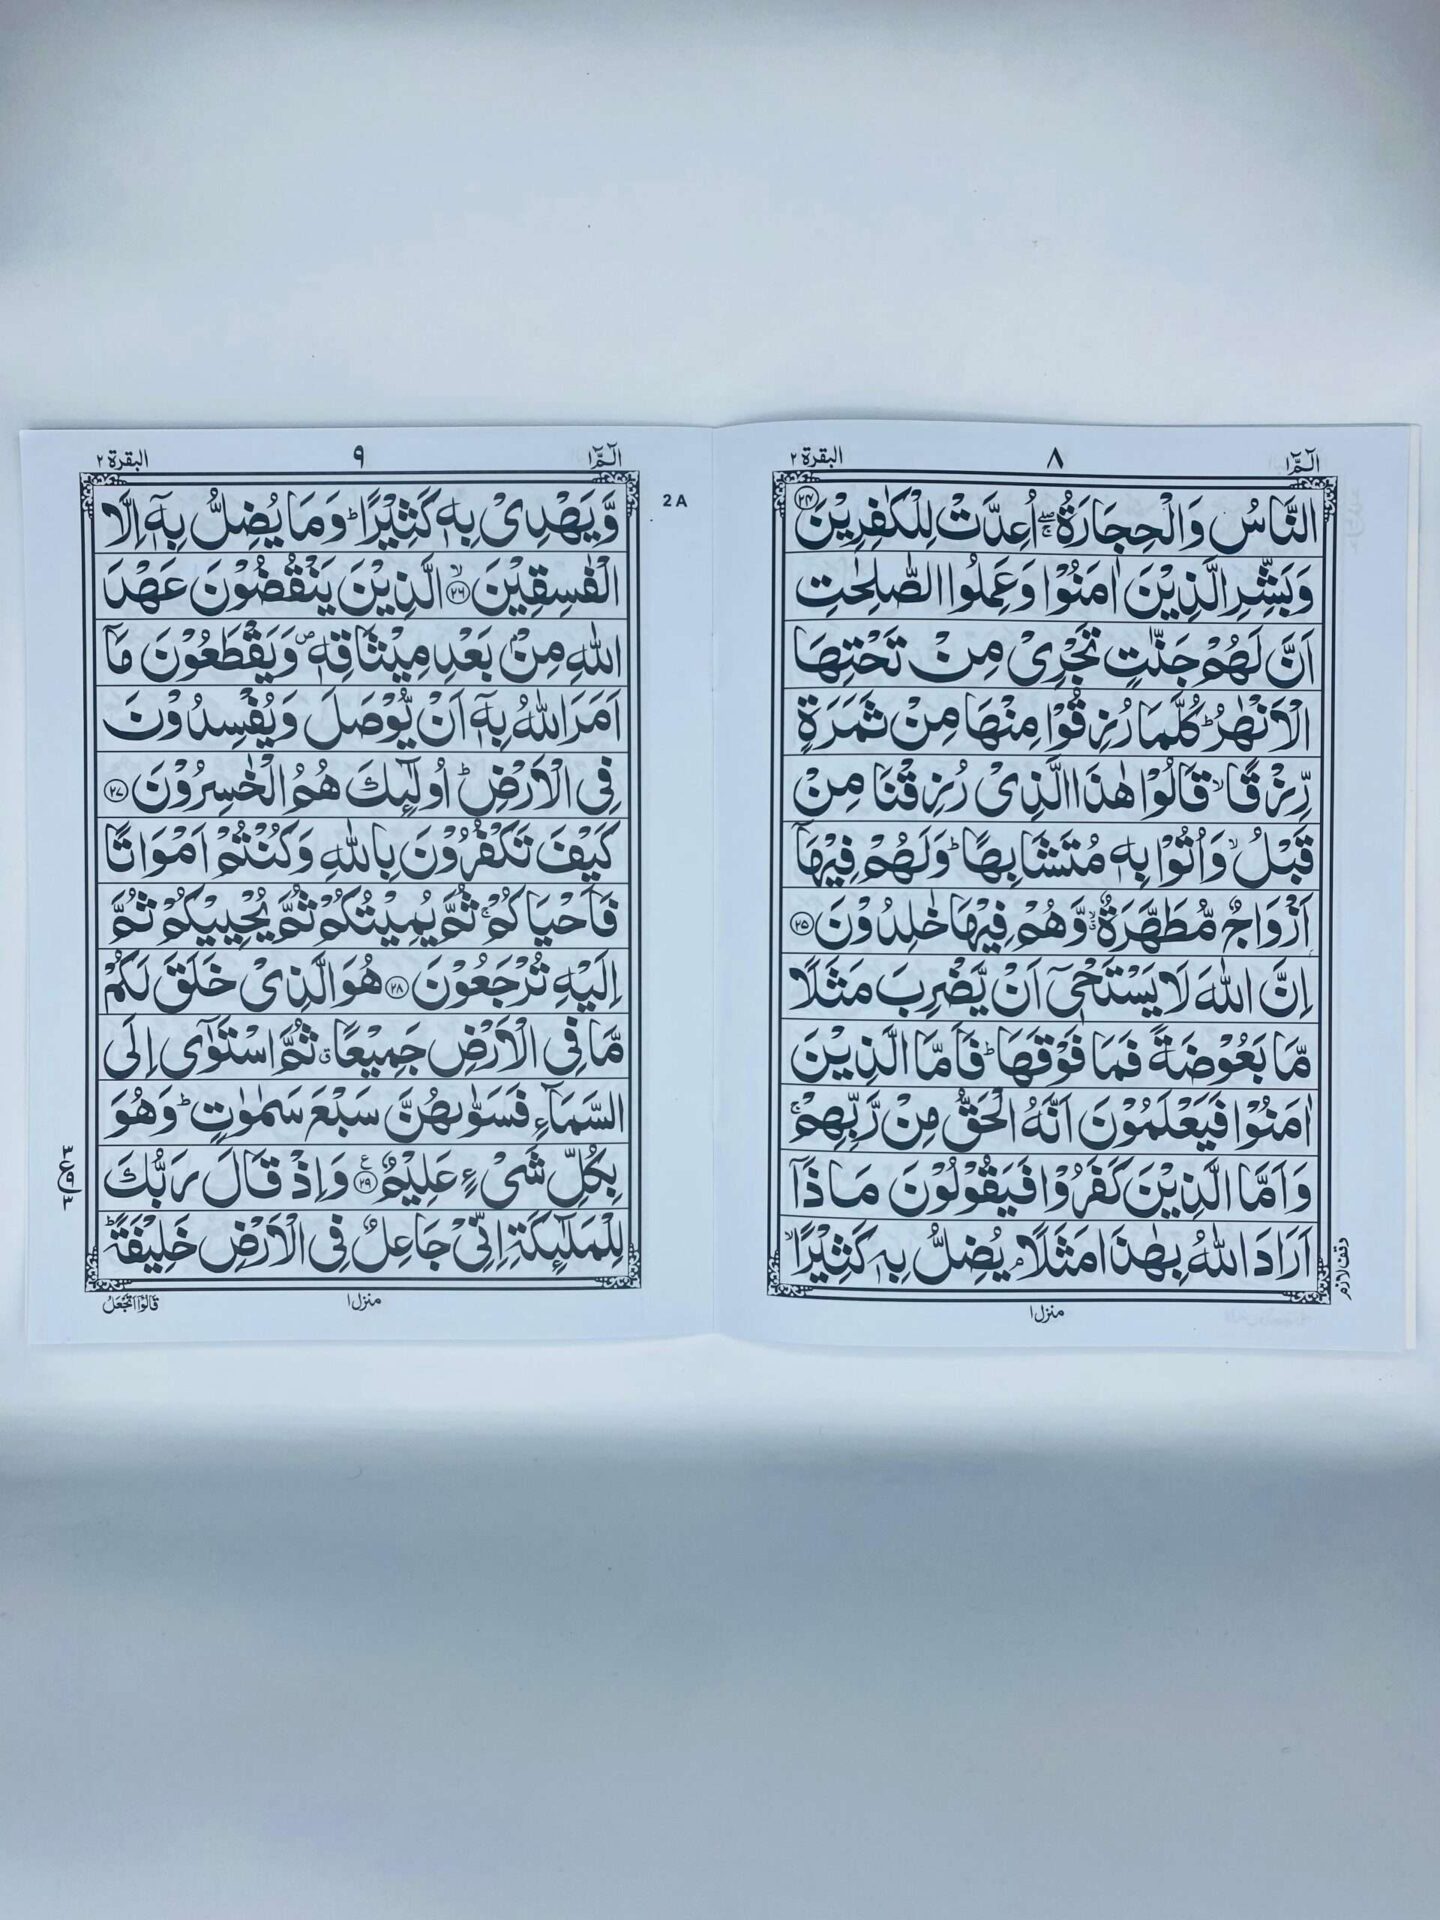 الٓمّٓ ١
٨
البقرة ٢
النَّاسُ وَالْحِجَارَةُ ۖۚ اُعِدَّتْ لِلْكٰفِرِيْنَ ﴿۲۴﴾
وَبَشِّرِ الَّذِيْنَ اٰمَنُوْا وَعَمِلُوا الصّٰلِحٰتِ
اَنَّ لَهُمْ جَنّٰتٍ تَجْرِيْ مِنْ تَحْتِهَا
الْاَنْهٰرُ ؕ كُلَّمَا رُزِقُوْا مِنْهَا مِنْ ثَمَرَةٍ
رِّزْقًا ۙ قَالُوْا هٰذَا الَّذِيْ رُزِقْنَا مِنْ
قَبْلُ ۙ وَاُتُوْا بِهٖ مُتَشَابِهًا ؕ وَلَهُمْ فِيْهَاۤ
اَزْوَاجٌ مُّطَهَّرَةٌ ۙۗ وَّهُمْ فِيْهَا خٰلِدُوْنَ ﴿۲۵﴾
اِنَّ اللّٰهَ لَا يَسْتَحْيٖۤ اَنْ يَّضْرِبَ مَثَلًا
مَّا بَعُوْضَةً فَمَا فَوْقَهَا ؕ فَاَمَّا الَّذِيْنَ
اٰمَنُوْا فَيَعْلَمُوْنَ اَنَّهُ الْحَقُّ مِنْ رَّبِّهِمْ ۚ
وَاَمَّا الَّذِيْنَ كَفَرُوْا فَيَقُوْلُوْنَ مَاذَاۤ
اَرَادَ اللّٰهُ بِهٰذَا مَثَلًا ۘ يُضِلُّ بِهٖ كَثِيْرًا ۙ
وقف لازم
منزل ١
الٓمّٓ ١
٩
البقرة ٢
2 A
وَّيَهْدِيْ بِهٖ كَثِيْرًا ؕ وَمَا يُضِلُّ بِهٖۤ اِلَّا
الْفٰسِقِيْنَ ﴿۲۶﴾ ۙ الَّذِيْنَ يَنْقُضُوْنَ عَهْدَ
اللّٰهِ مِنْۢ بَعْدِ مِيْثَاقِهٖ ۪ وَيَقْطَعُوْنَ مَاۤ
اَمَرَ اللّٰهُ بِهٖۤ اَنْ يُّوْصَلَ وَيُفْسِدُوْنَ
فِي الْاَرْضِ ؕ اُولٰٓئِكَ هُمُ الْخٰسِرُوْنَ ﴿۲۷﴾
كَيْفَ تَكْفُرُوْنَ بِاللّٰهِ وَكُنْتُمْ اَمْوَاتًا
فَاَحْيَاكُمْ ۚ ثُمَّ يُمِيْتُكُمْ ثُمَّ يُحْيِيْكُمْ ثُمَّ
اِلَيْهِ تُرْجَعُوْنَ ﴿۲۸﴾ هُوَ الَّذِيْ خَلَقَ لَكُمْ
مَّا فِي الْاَرْضِ جَمِيْعًا ق ثُمَّ اسْتَوٰۤى اِلَى
السَّمَآءِ فَسَوّٰىهُنَّ سَبْعَ سَمٰوٰتٍ ؕ وَهُوَ
بِكُلِّ شَيْءٍ عَلِيْمٌ ﴿۲۹﴾ ع وَاِذْ قَالَ رَبُّكَ
لِلْمَلٰٓئِكَةِ اِنِّيْ جَاعِلٌ فِي الْاَرْضِ خَلِيْفَةً ؕ
منزل ١
قَالُوْۤا اَتَجْعَلُ